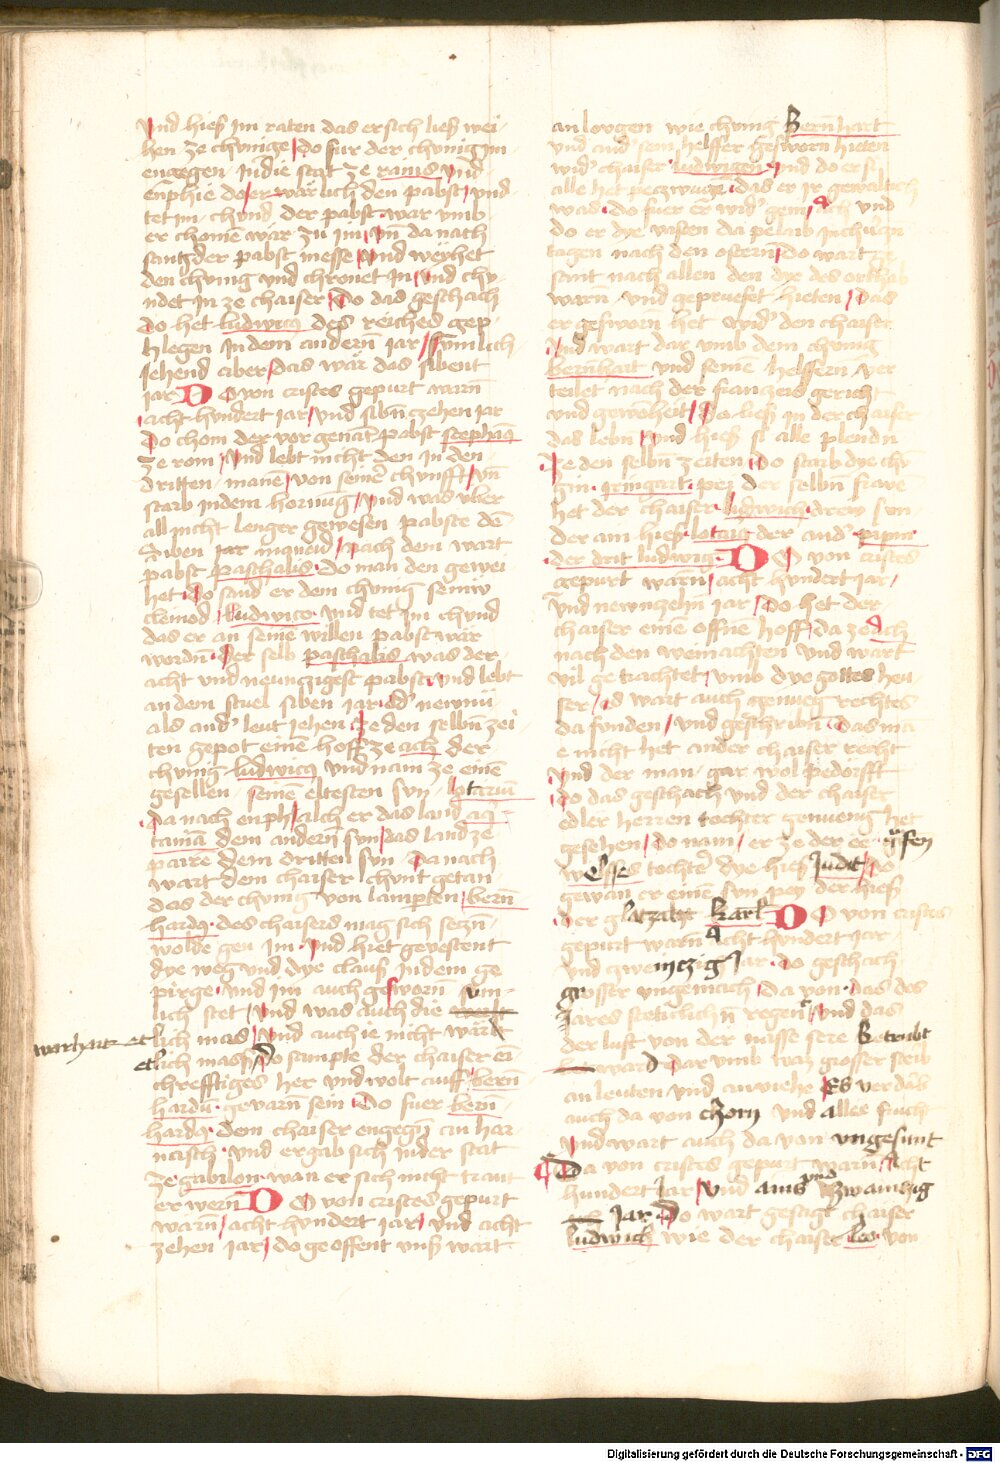 vnd hieß im raten das er sich ließ wei
hen ze chvnige Do fur der chvnig im
engegen in die stat ze rains vnd
enphie do er wärlich den pabst vnd
tet im chvnd der pabst war vmb
er chomē wär zu im vn̄ da nach
sang der pabst messe vnd weyhet
den chvnig vnd chronet in vnd chv
ndet in ze chaiser Do das geschach
Do het ludwicg des reiches gep
hlegen in dem andern̄ iar sümlich
iehend aber das wär das sibent
iar D O von cristes gepurt warn̄
acht hundert iar vnd sibn̄ czehen iar
Do chom der vor genāt pabst stephan9
ze rom vnd lebt nicht den in den
dritten manē von seiner chvnfft vn̄
starb in dem hornung vnd was vber
all nicht lenger gewesen pabste den̄
Siben iar nach dem wart
pabst paschalis Do man den gewei
het do sand er dem chvnig seinev
cleinod ludwico vnd tet im chvnd
das er an seine willen pabst wär
wordn̄ Der selb paschalis was der
acht vnd neunczigest pabst vnd lebt
an dem stuel siben iar od' newnū
als and' leut iehen ze den selbn̄ zei
ten gepot einē hoff ze ach der
chvnig ludwicg vnd nam ze einē
gesellen seinen eltesten svn lotariū
da nach enphalch er das land aq
tania dem andern̄ svn das land ze
paire dem dritten svn Da nach
wart dem chaiser chvnt getan
das der chvnig von lamparten bern̄
hardg des chaisers mag sich seczn̄
wolde gen im vnd hiet gevestent
dye weg vnd dye claus in dem ge
pirge vnd im auch geswornn̄ vm
lich stet vnd was auch die
lich mas vnd auch ie nicht wär
etlich mass Do sampte der chaiser ei
chrefftiges her vnd wolt auff bern̄
hardū gevarn̄ sein Do fuer bern̄
hardg dem chaiser engegn̄ an har
nasch vnd ergab sich in der stat
ze gabilon wan er sich nicht traut
er wern̄ D O von cristes gepurt
warn̄ acht hundert iar vnd acht
zehen iar do geoffent vnß wart
an lougen wie chvnig Bernhart
vnd and' sein helffer gesworn hieten
wid' chaiser ludwigen vnd do er si
alle het peczwungen das er ir gewaltich
was do fuer er wid' gein ach vnd
do er dye vasten da pelaib in chūrczn̄
tagen nach den ostern̄ do wart ge
sant nach allen den dye des orthab
warn̄ vnd gepruefet hieten das
er gesworn̄ het wid' den chaiser
vnd wart dar vmb dem chvnig
bernhart vnd seinen helffern̄ ver
teilet nach der franczeis gericht
vnd gewoheit Do ließ in der chaiser
das lebn̄ vnd hieß si alle plendn̄
ze den selbn̄ zeiten Do starb dye chv
gin irmgart pey der selbn̄ frawē
het der chaiser ludwich drey svn
der ain hieß lotarig der and' pipin9
der drit ludwig D O von cristes
gepurt warn̄ acht hundert iar
vnd newnzehn iar Do het der
chaiser einē offnē hoff da ze ach
nach den weinachten vnd wart
vil getrachtet vmb dye gottes heu
ser es wart auch genueg rechtes
da funden vnd geschribn̄ das mā
e nicht het ander chaiser recht
vnd der man gar wol pedörfft
do das geschach vnd der chaiser
edler herren tochter genueng het
gesehen do nam er ze der ee
welfes tochter dye hieß Judit Do
gewan er einē svn pey der hieß
der glatzatt Karl D O von cristes
gepurt warn̄ acht hundert iar
vnd zweinczig iar do geschach
grosser vngemach Da von das des
Jares stetiklich n̄ regen vnd das
der luft von der nässe sere betrubt
ward Dar vmb was grosser sterb
an leuten vnd an viehe Es verdarb
auch da von chorn vnd aller frucht
vnd wart auch da von vngesunt
Da von cristes gepurt warn̄ Acht
hundert Jar vnd ains vnd zwainczig
Jar Do wart gesagt chaiser
ludwich wie der chaiser leo von
Digitalisierung gefördert durch die Deutsche Forschungsgemeinschaft - DFG